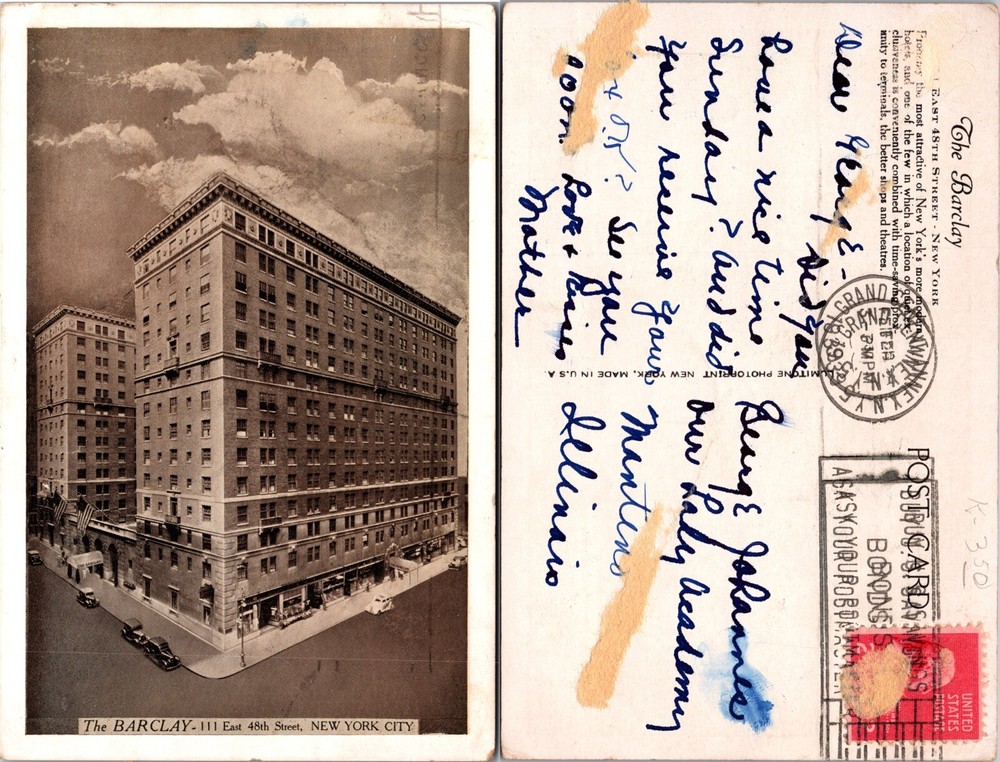 The BARCLAY - 111 East 48th Street, NEW YORK CITY
The Barclay
111 EAST 48TH STREET - NEW YORK
Probably the most attractive of New York's more modern
hotels, and one of the few in which a location of quiet
clusiveness is conveniently combined with time-saving
imity to terminals, the better shops and theatres.
Dear George -
Did you
have a nice time
Sunday? and did
you receive your
O.K? See you
soon. Love & Kisses
Mother
LUMITONE PHOTOPRINT NEW YORK. MADE IN U.S.A.
POST CARD
GRAND
N.Y.
FEB
PM
BUY U.S. SAVINGS
BONDS
ASK YOUR POSTMASTER
UNITED
STATES
POSTAGE
George Johannes
Our Lady Academy
Manteno
Illinois
K-350